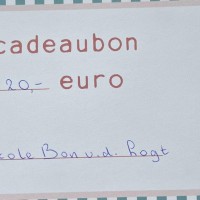 cadeaubon
20,- euro
cole Bon v.d. Hogt